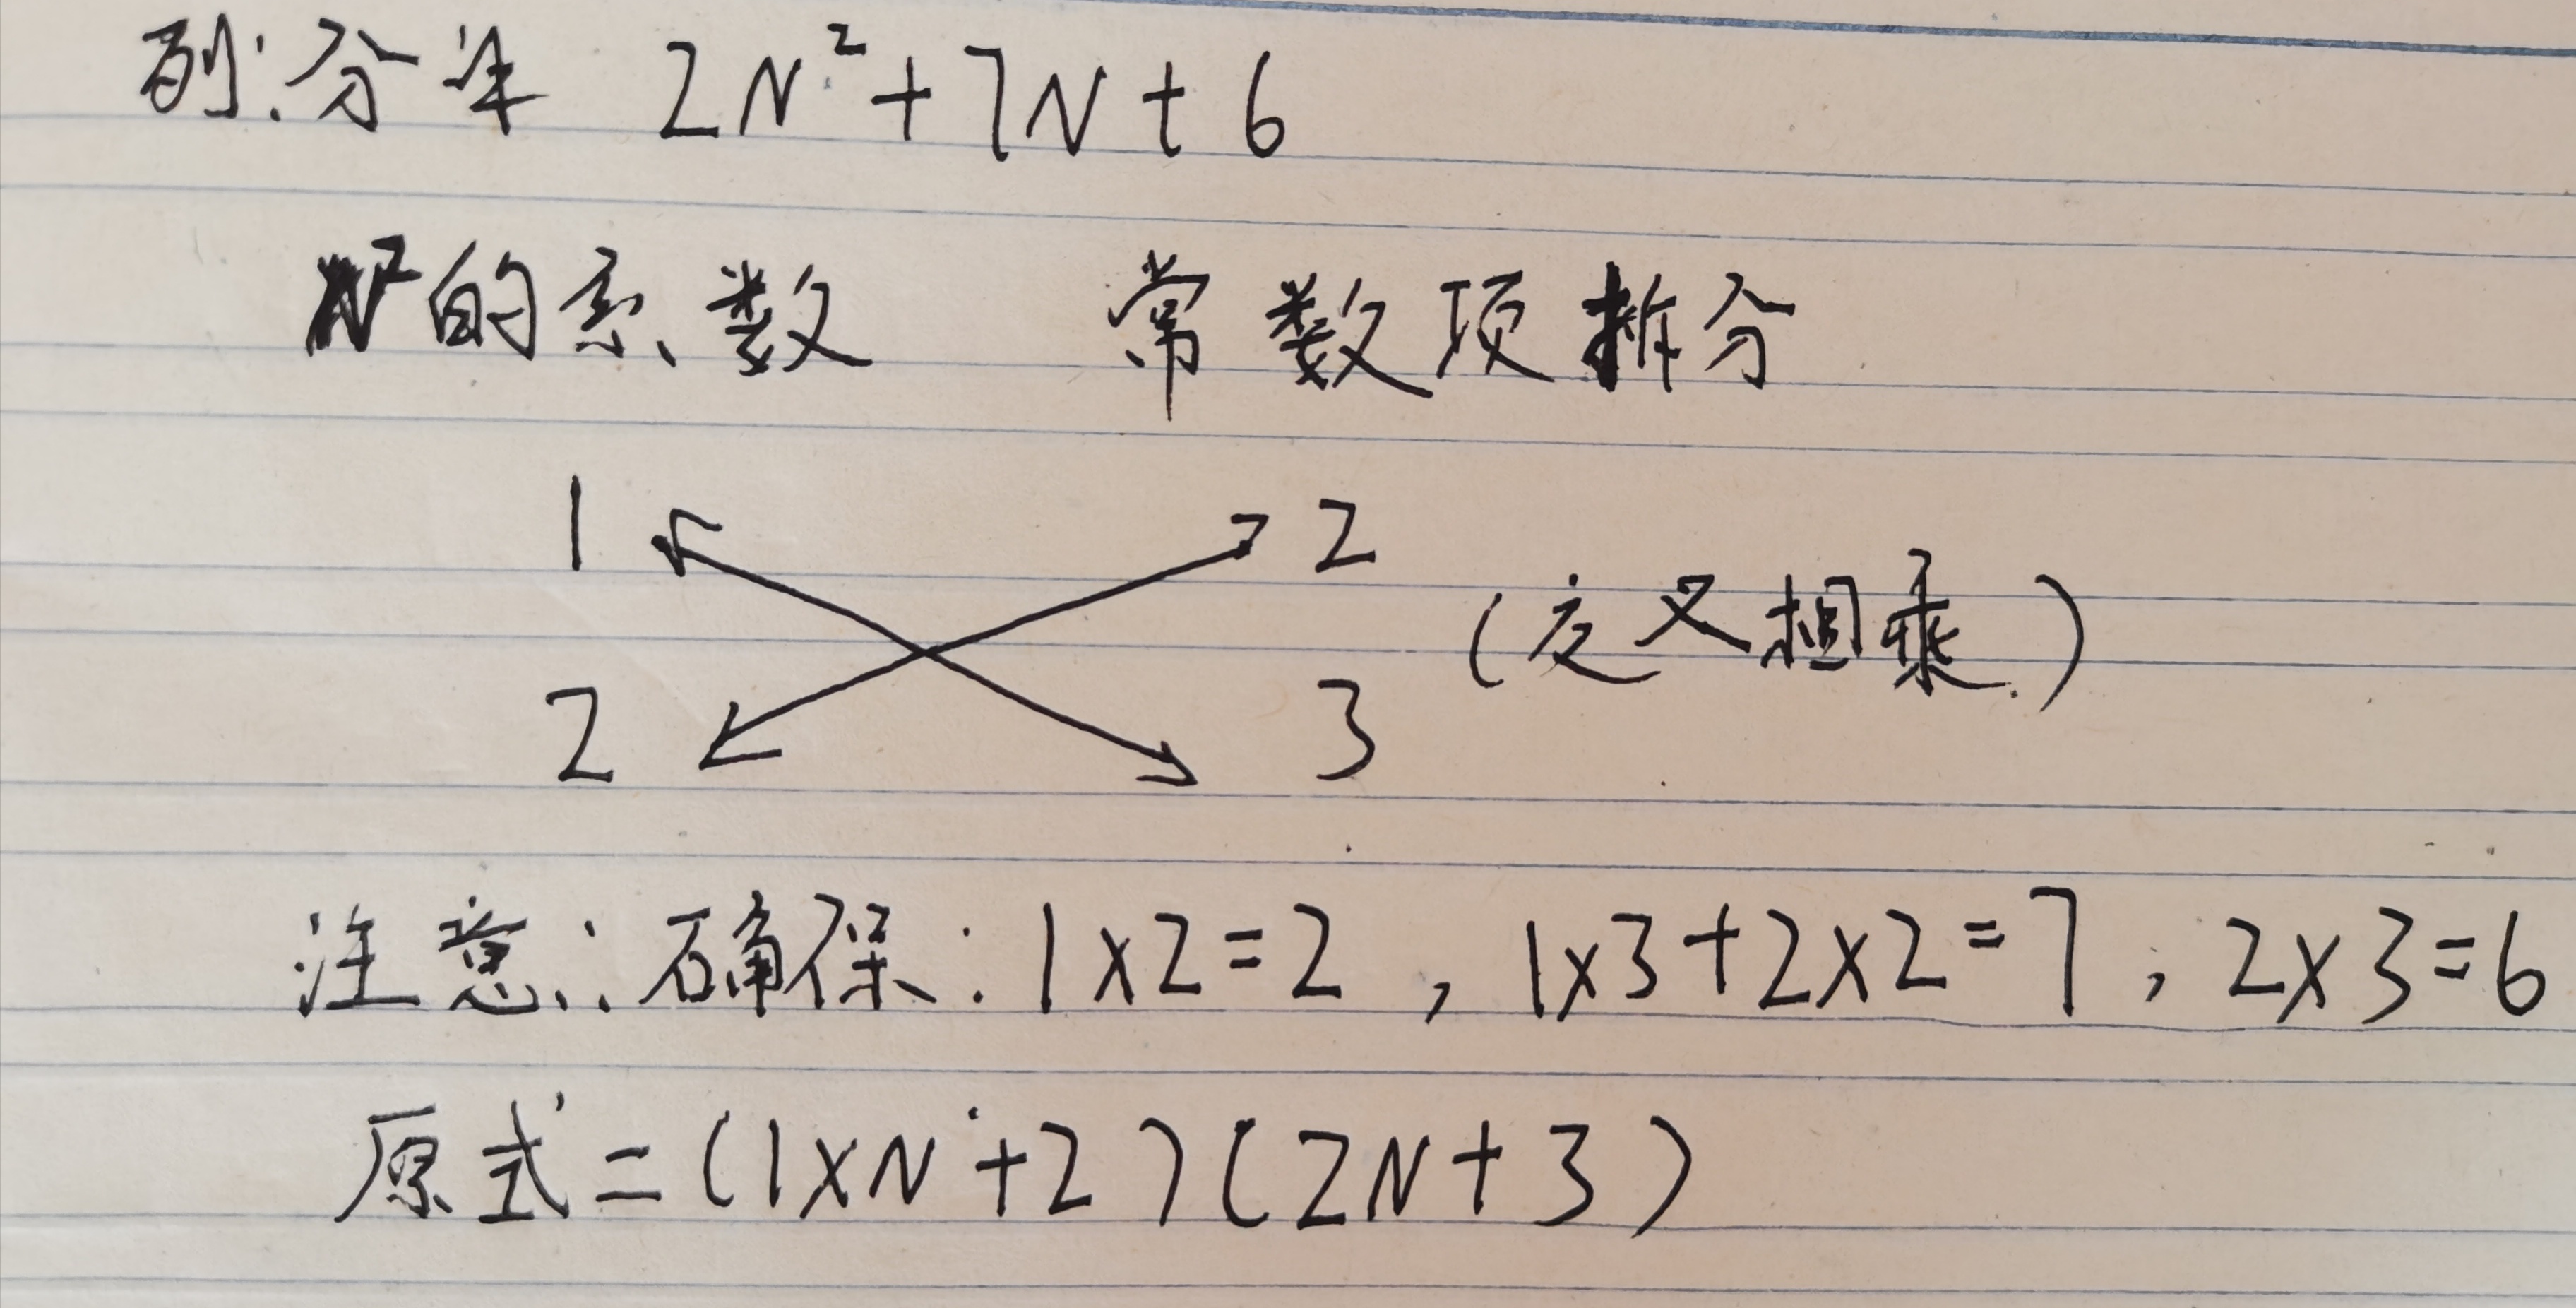 例:分解 2N²+7N+6
N²的系数 常数项拆分
1 2
(交叉相乘)
2 3
注意:确保:1×2=2,1×3+2×2=7,2×3=6
原式=(1×N+2)(2N+3)